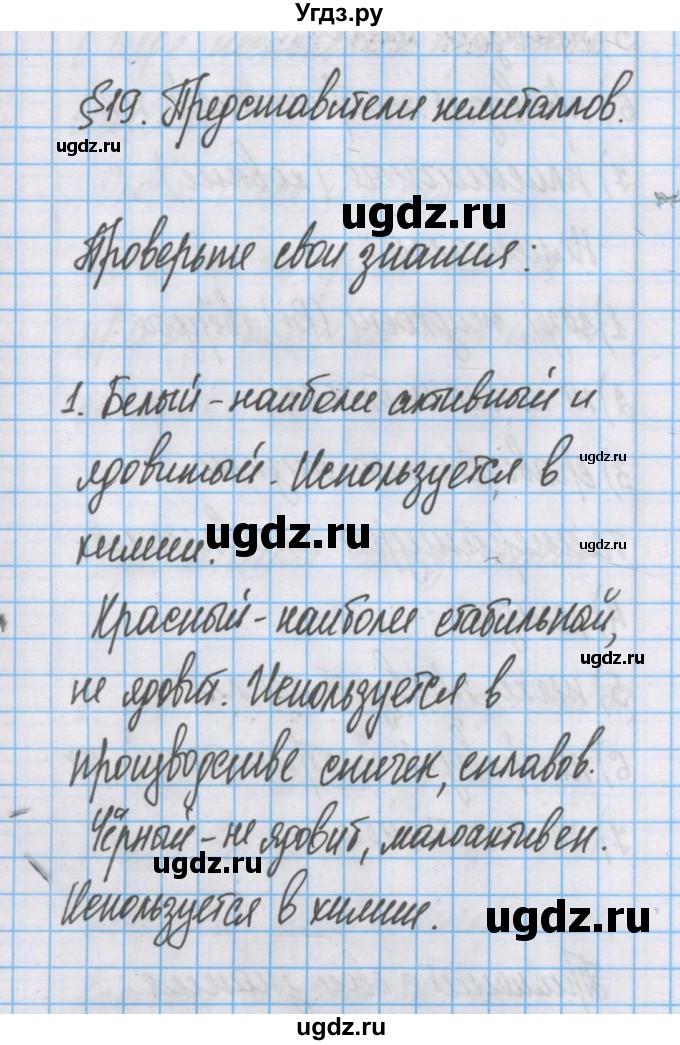 Угдз.ру
§19. Представители неметаллов.
ugdz.ru
ugdz.ru
Проверьте свои знания:
1. Белый - наиболее активный и
ugdz.ru
ядовитый. Используется в
ugdz.ru
химии.
ugdz.ru
Красный - наиболее стабильный,
ugdz.ru
не ядовит. Используется в
производстве спичек, сплавов.
Чёрный - не ядовит, малоактивен.
ugdz.ru
Используется в химии.
ugdz.ru
ugdz.ru